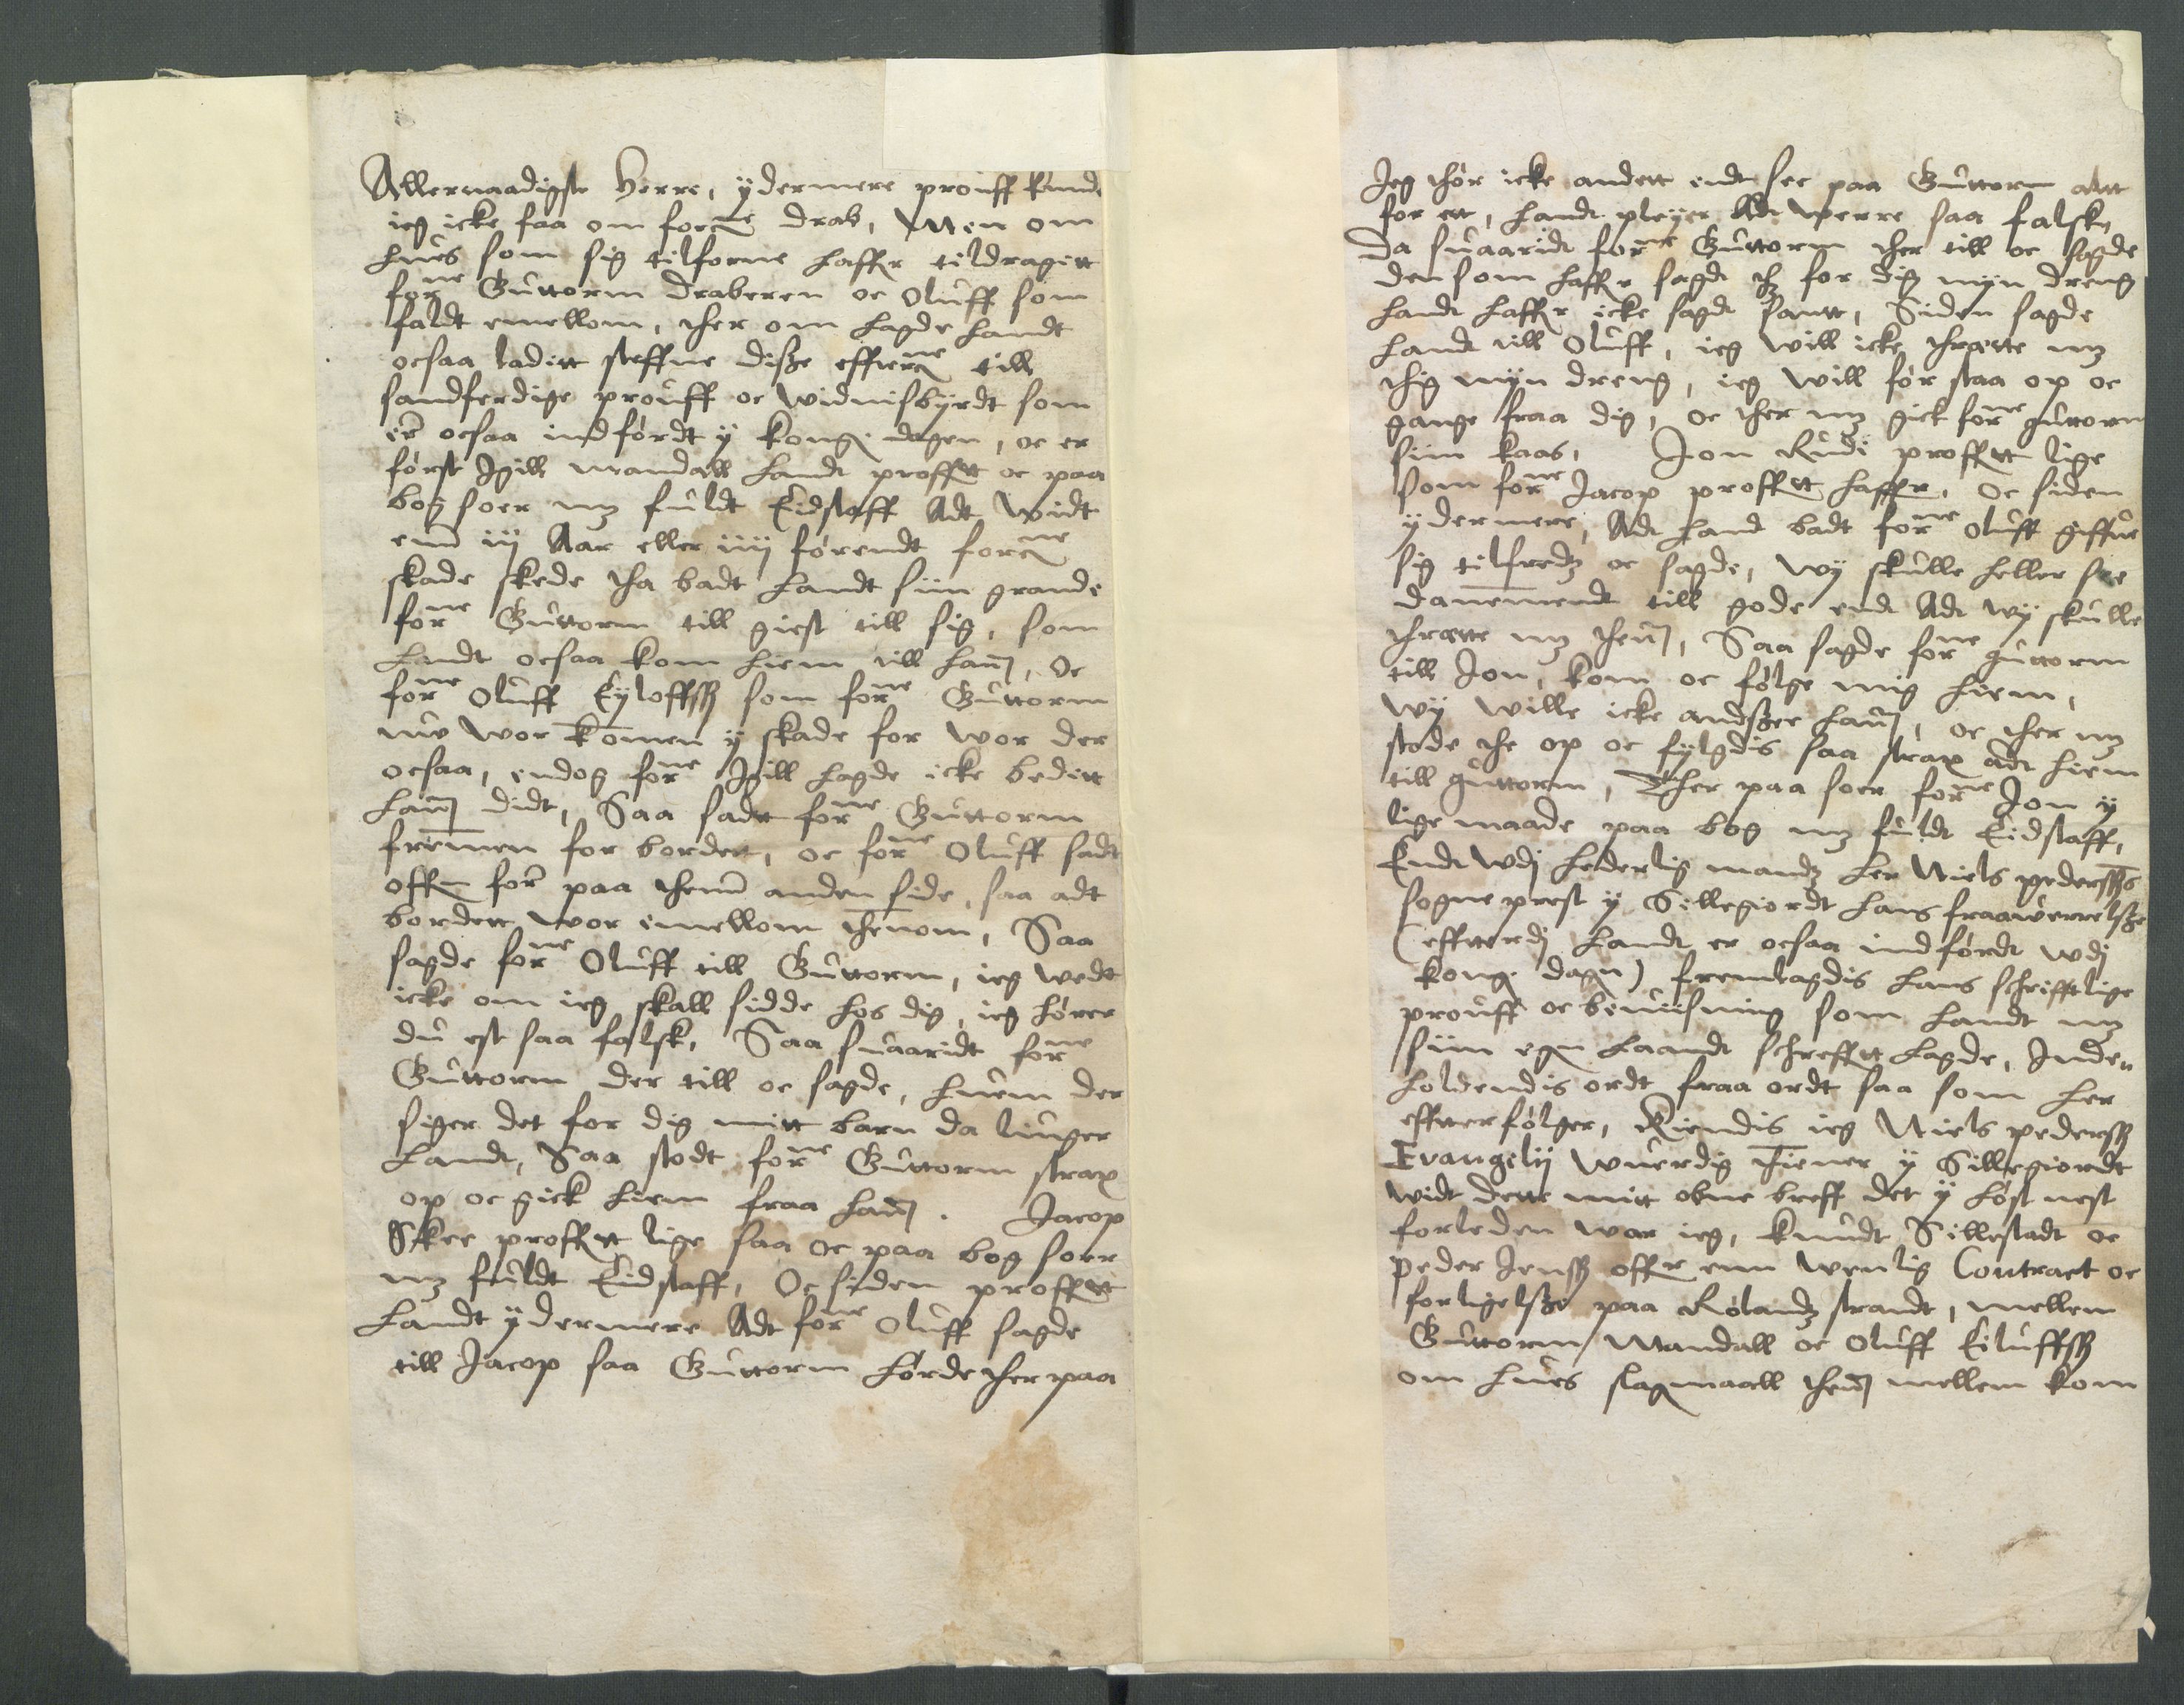 Allernaadigste Herre, ÿdermere prouff kunde
ieg icke faa om forne drab, Men om
hues som sig tilforne haffr tildragett
forne Guttorm draberen oc Oluff som
faldt emellom, ther om hagde handt
ocsaa laditt steffne disse effterne till
sandferdige prouff oc widnisbÿrdt som
er ocsaa indfórdt ÿ kong: dagen, oc er
fórst Igill Mandall handt proffett oc paa
bog soer mz fuldt Eidstaff Adt widt
enn iij Aar eller iiij fórendt forne
skade skede tha badt handt siin grande
forne Guttorm till giest till sig, som
handt ocsaa kom hiem till hannom, Oc
forne Oluff Eyloffss som forne Guttorm
nue wor kommen ÿ skade for wor der
ocsaa, endog forne Igill hagde icke beditt
hannom didt, Saa sadt forne Guttorm
fremmen for bordett, oc forne Oluff sadt
offuen for paa thenn anden side, saa adt
bordett wor emellom thennom, Saa
sagde forne Oluff till Guttorm, ieg wedt
icke om ieg skall sidde hos dig, ieg hórer
du est saa falsk, Saa suaaridt forne
Guttorm der till oc sagde, huem der
siger det for dig mitt barn da liuger
handt, Saa stodt forne Guttorm strax
op oc gick hiem fraa hannom. Jacop
Skee proffett lige saa oc paa bog soer
mz fuldt Eidstaff, Oc siden proffett
handt ÿdermere Adt forne Oluff sagde
till Jacop saa Guttorm hórde ther paa
Jeg thór icke andett endt see paa Guttorm altt
for ett, handt pleÿer Adt werre saa falsk,
Da suaaridt forne Guttorm ther till oc sagde
den som haffr sagdt thz for dig mÿn dreng
handt haffr icke sagdt santt, Siden sagde
handt till Oluff, ieg will icke thrette mz
thig mÿn dreng, ieg will fór staa op oc
gange fraa dig, oc ther mz gick forne guttorm
sin kaas, Jon Rudi proffett lige
som forne Jacop proffett haffr, Oc siden
ÿdermere, Adt hand badt forne Oluff giffue
sig tilfredz oc sagde, wÿ skulle heller see
dannemendt till gode endt Adt wÿ skulle
thrette mz thennom, Saa sagde forne guttorm
till Jon, kom oc fólge mig hiem,
wÿ wille icke andsee hannom, oc ther mz
stode the op oc fÿlgdis saa strax adt hiem
till guttorm, Ther paa soer forne Jon ÿ
lige maade paa bog mz fuldt Eidstaff,
Endt wdj hederlig mandz her Niels pederssøns
sogneprest ÿ Sillegiordt hans fraawerrelsse
(effterdj handt er ocsaa indfórdt wdj
kong: dagen) fremlagdis hans schrifftlige
prouff oc beuiisning som handt mz
siin egen haandt schreffuett hagde, Inden
holdendis ordt fraa ordt saa som her
effterfólger, Kiendis ieg Niels pederss
Evangelij wuerdig Tiener ÿ Sillegiordt
widt dette mitt obne breff det ÿ hóst nest
forleden war ieg, knudt Sillestadt oc
peder Jenss offuer enn wenlig Contract oc
forligelsse paa Rolandz strandt, mellem
Guttorm Mandall oc Oluff Eiluffss
om hues slagmaall thennom mellem kom